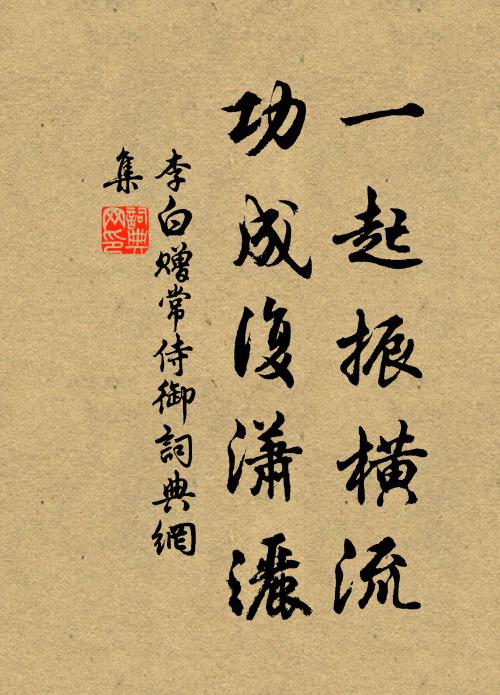 一起振橫流
功成復瀟灑
李白贈常侍御詞典網
集
詞典網印